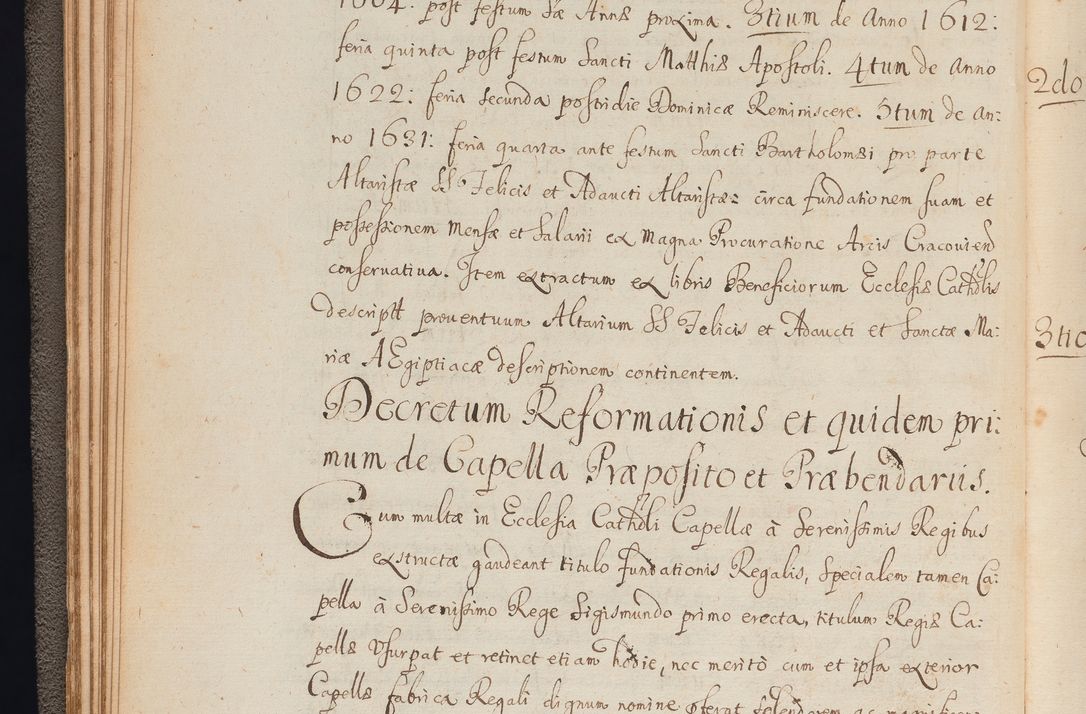 1604. post festum Sæ Annæ proxima. 3tium de Anno 1612:
feria quinta post festum Sancti Matthiæ Apostoli. 4tum de Anno
1622: feria secunda postridie Dominicæ Reminiscere. 5tum de An:
no 1631: feria quarta ante festum Sancti Bartholomæi pro parte
Altaristæ SS Felicis et Adaucti Altaristæ: circa fundationem suam et
possessionem mensæ et salarii ex Magna Procuratione Arcis Cracovien
conservativa. Item extractum ex libris Beneficiorum Ecclesiæ Cathlis
descriptt proventuum Altarium SS Felicis et Adaucti et Sanctæ Ma:
riæ AEgiptiacæ descriptionem continentem.
Decretum Reformationis et quidem pri:
mum de Capella Præposito et Præbendariis.
Cum multæ in Ecclesia Cathdli Capellæ à Serenissimis Regibus
exstructæ gaudeant titulo fundationis Regalis, specialem tamen Ca:
pella à Serenissimo Rege Sigismundo primo erecta, titulum Regiæ Ca:
pellæ Usurpat et retinet etiam hodie, nec meritò cum et ipsa exterior
Capellæ fabrica Regali dignum nomine
2do
3tio